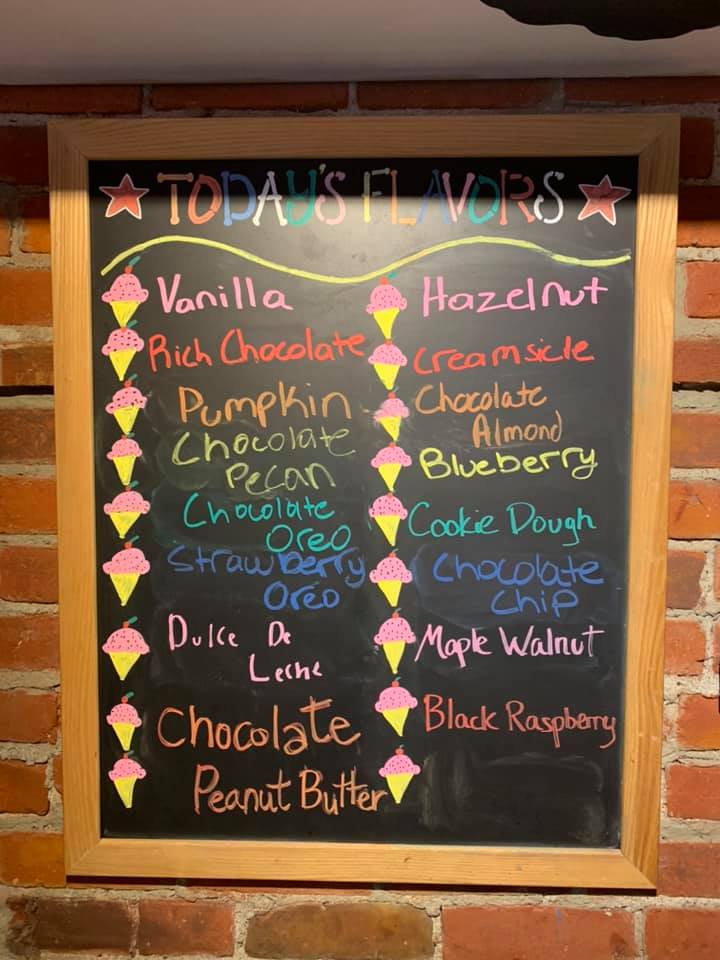 TODAY'S FLAVORS
Vanilla
Rich Chocolate
Pumpkin
Chocolate
Pecan
Chocolate
Oreo
Strawberry
Oreo
Dulce De
Leche
Chocolate
Peanut Butter
Hazelnut
Creamsicle
Chocolate
Almond
Blueberry
Cookie Dough
Chocolate
Chip
Maple Walnut
Black Raspberry